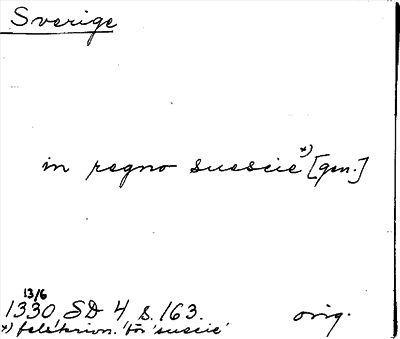 Sverige
in regno suescie *) [gen.]
13/6
1330 SD 4 s. 163. orig.
*) felskrivn. för 'suecie'